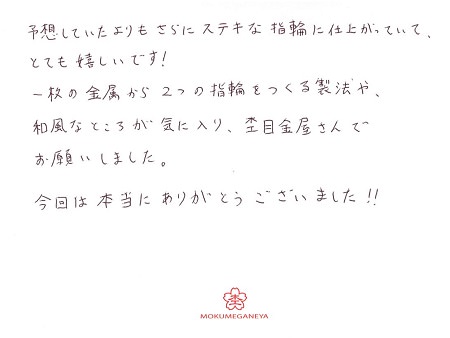 予想していたよりもさらにステキな指輪に仕上がっていて、
とても嬉しいです!
一枚の金属から2つの指輪をつくる製法や、
和風なところが気に入り、杢目金屋さんで
お願いしました。
今回は本当にありがとうございました!!
杢
MOKUMEGANEYA